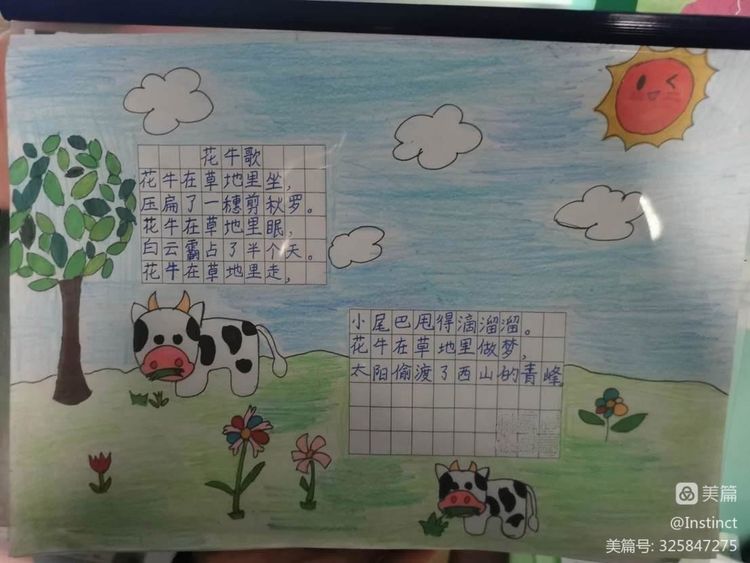 花牛歌
花牛在草地里坐,
压扁了一穗剪秋罗。
花牛在草地里眠,
白云霸占了半个天。
花牛在草地里走,
小尾巴甩得滴溜溜。
花牛在草地里做梦,
太阳偷渡了西山的青峰
美篇
@Instinct
美篇号: 325847275